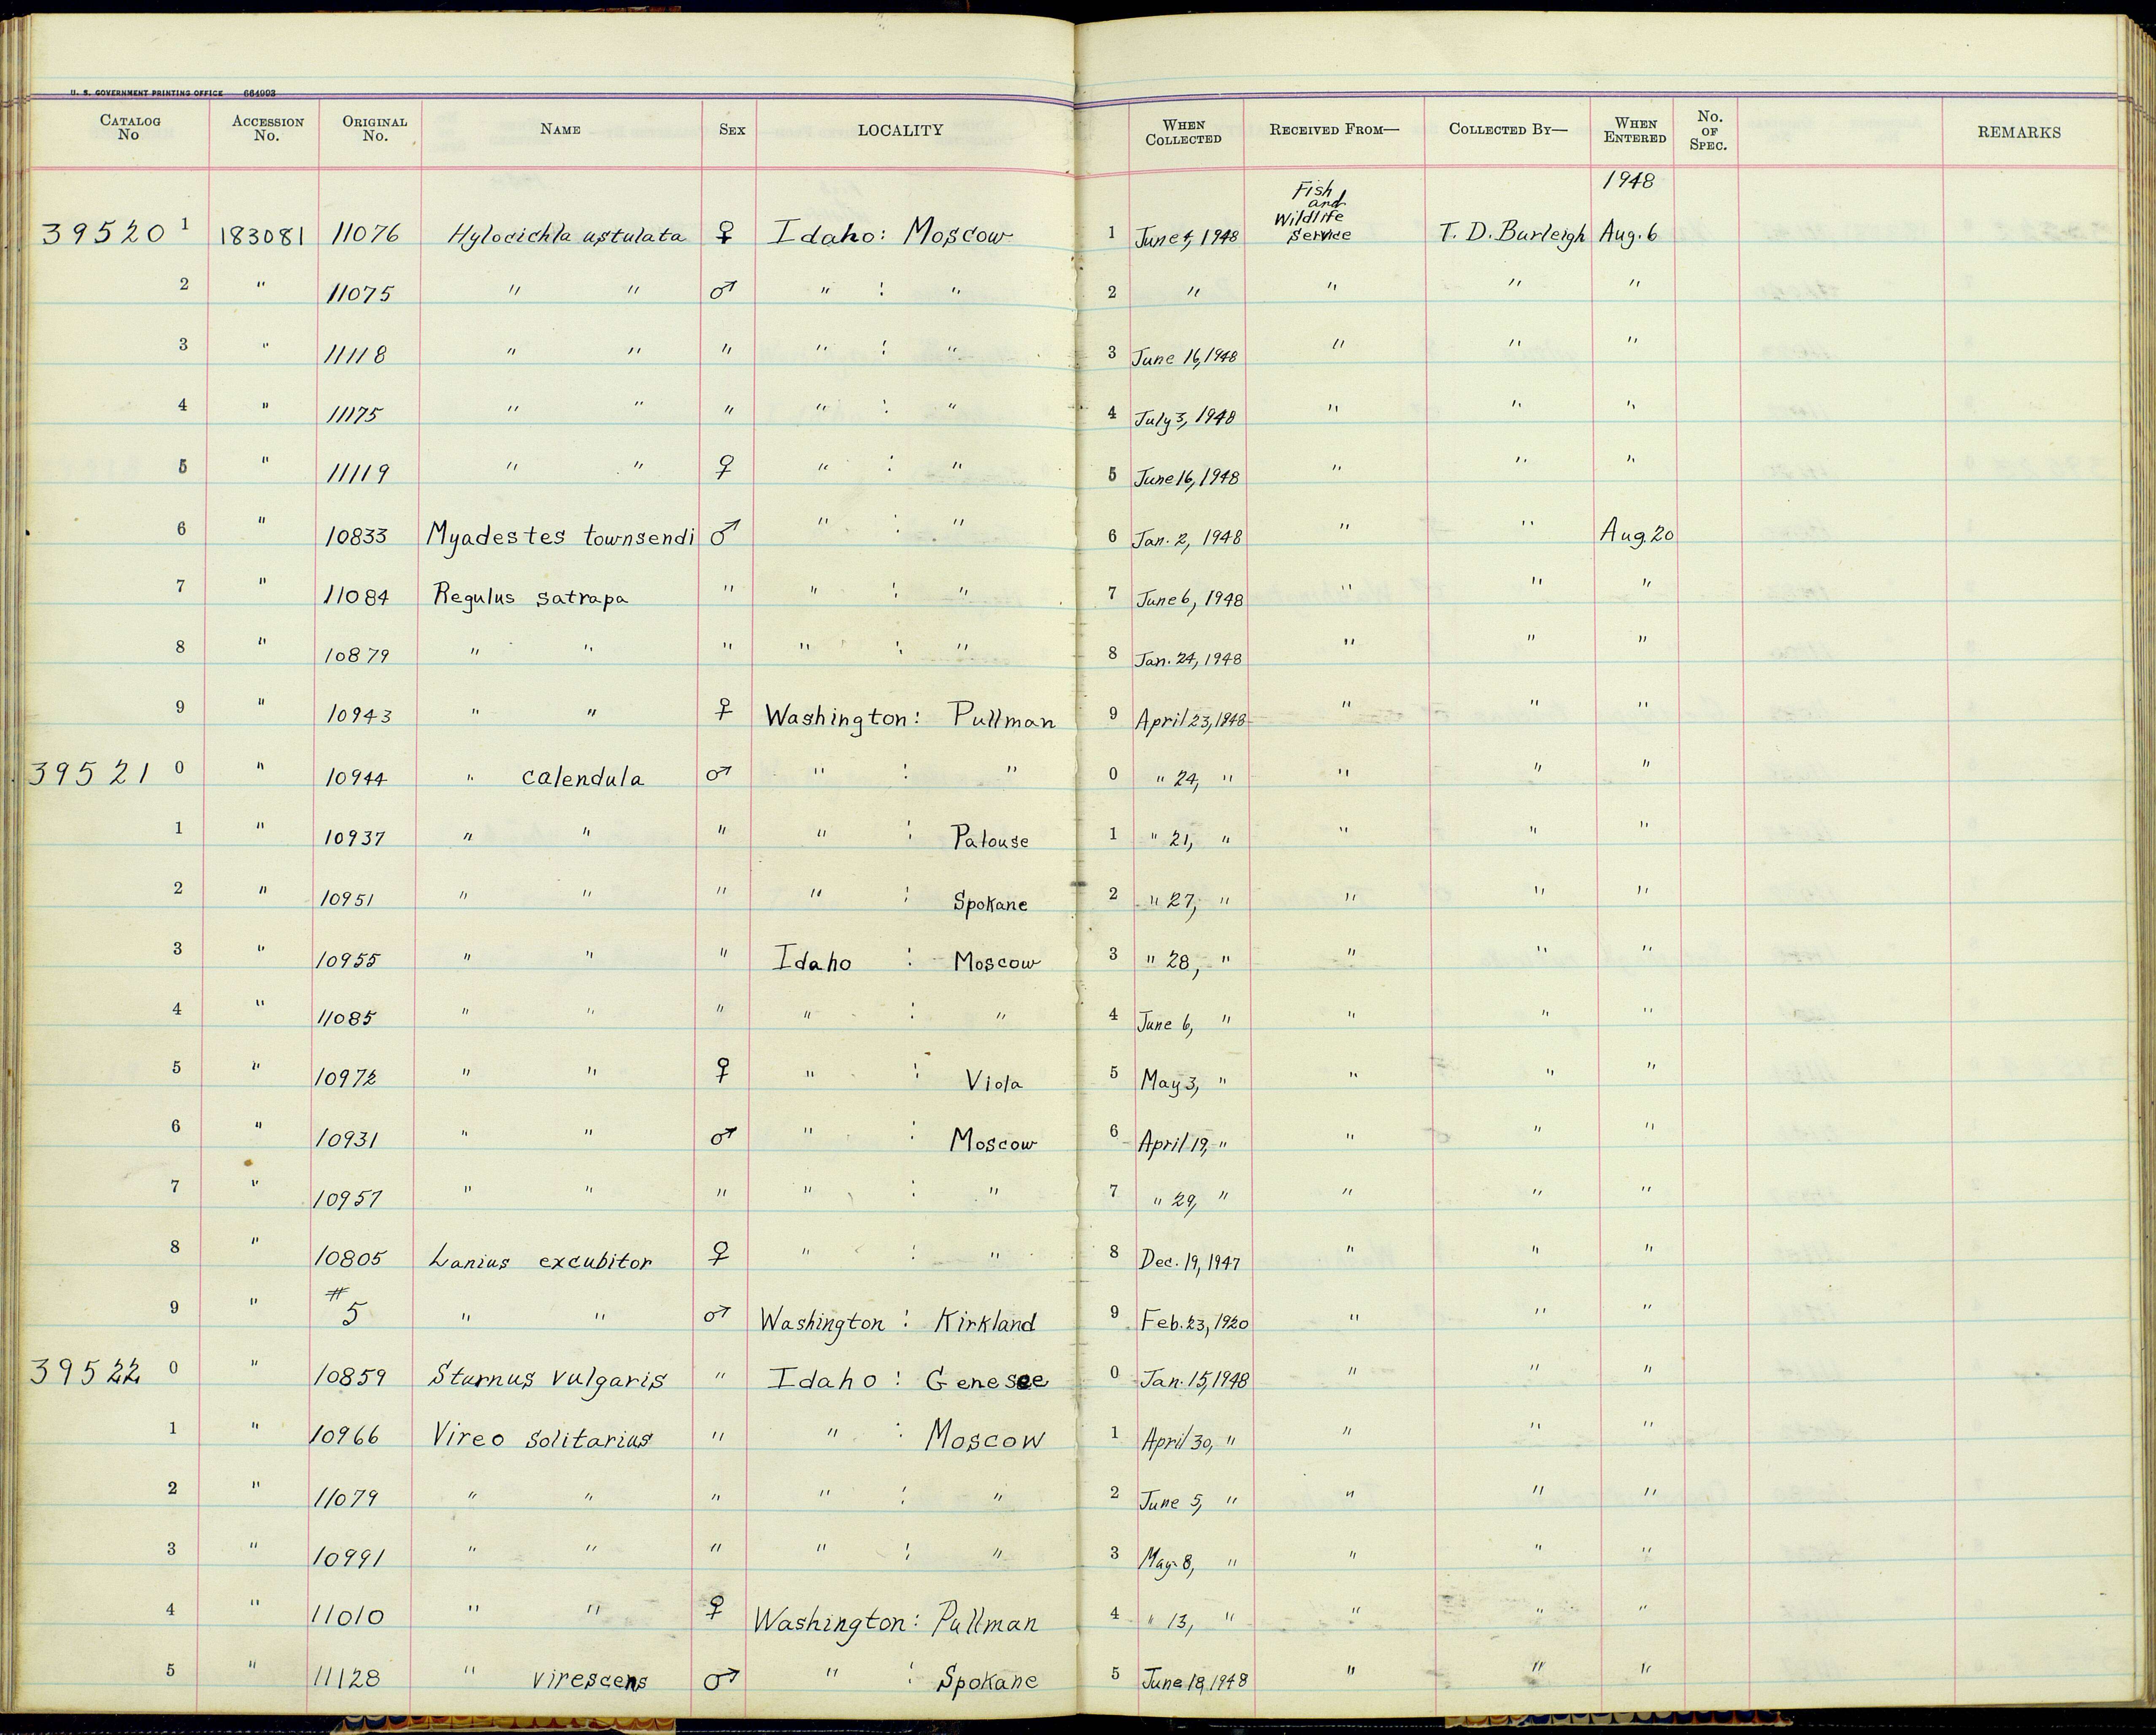 U. S. GOVERNMENT PRINTING OFFICE 664903
CATALOG No ACCESSION No. ORIGINAL No. NAME SEX LOCALITY WHEN COLLECTED RECEIVED FROM— COLLECTED BY— WHEN ENTERED No. OF SPEC. REMARKS
1948
39520 1 183081 11076 Hylocichla ustulata ♀ Idaho: Moscow 1 June 4, 1948 Fish and Wildlife Service T. D. Burleigh Aug. 6
2 " 11075 " " ♂ " : " 2 " " " "
3 " 11118 " " " " : " 3 June 16, 1948 " " "
4 " 11175 " " " " : " 4 July 3, 1948 " " "
5 " 11119 " " ♀ " : " 5 June 16, 1948 " " "
6 " 10833 Myadestes townsendi ♂ " : " 6 Jan. 2, 1948 " " Aug. 20
7 " 11084 Regulus satrapa " " : " 7 June 6, 1948 " " "
8 " 10879 " " " " : " 8 Jan. 24, 1948 " " "
9 " 10943 " " ♀ Washington: Pullman 9 April 23, 1948 " " "
39521 0 " 10944 " calendula ♂ " : " 0 " 24, " " " "
1 " 10937 " " " " : Palouse 1 " 21, " " " "
2 " 10951 " " " " : Spokane 2 " 27, " " " "
3 " 10955 " " " Idaho : Moscow 3 " 28, " " " "
4 " 11085 " " " " : " 4 June 6, " " " "
5 " 10972 " " ♀ " : Viola 5 May 3, " " " "
6 " 10931 " " ♂ " : Moscow 6 April 19, " " " "
7 " 10957 " " " " : " 7 " 29, " " " "
8 " 10805 Lanius excubitor ♀ " : " 8 Dec. 19, 1947 " " "
9 " # 5 " " ♂ Washington : Kirkland 9 Feb. 23, 1920 " " "
39522 0 " 10859 Sturnus vulgaris " Idaho : Genesee 0 Jan. 15, 1948 " " "
1 " 10966 Vireo solitarius " " : Moscow 1 April 30, " " " "
2 " 11079 " " " " : " 2 June 5, " " " "
3 " 10991 " " " " : " 3 May 8, " " " "
4 " 11010 " " ♀ Washington : Pullman 4 " 13, " " " "
5 " 11128 " virescens ♂ " : Spokane 5 June 18, 1948 " " "